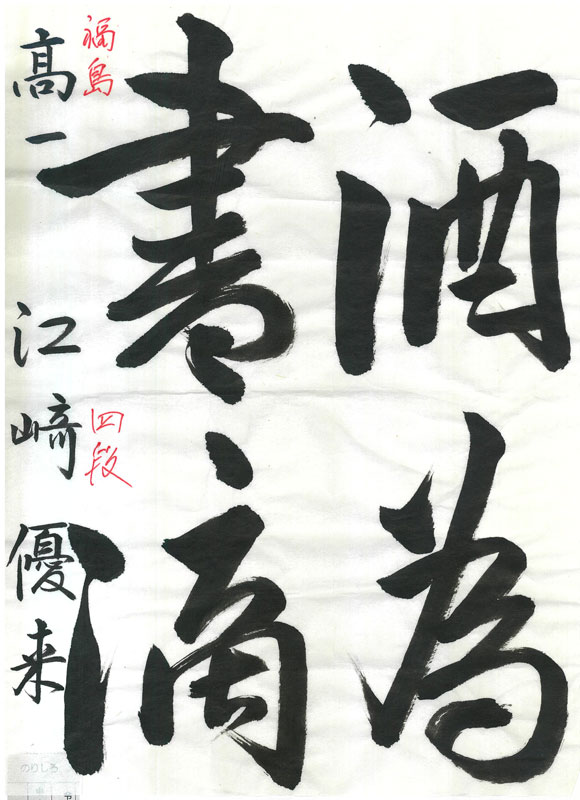 酒為
書滴
福島
四段
高一 江﨑優来
のりしろ